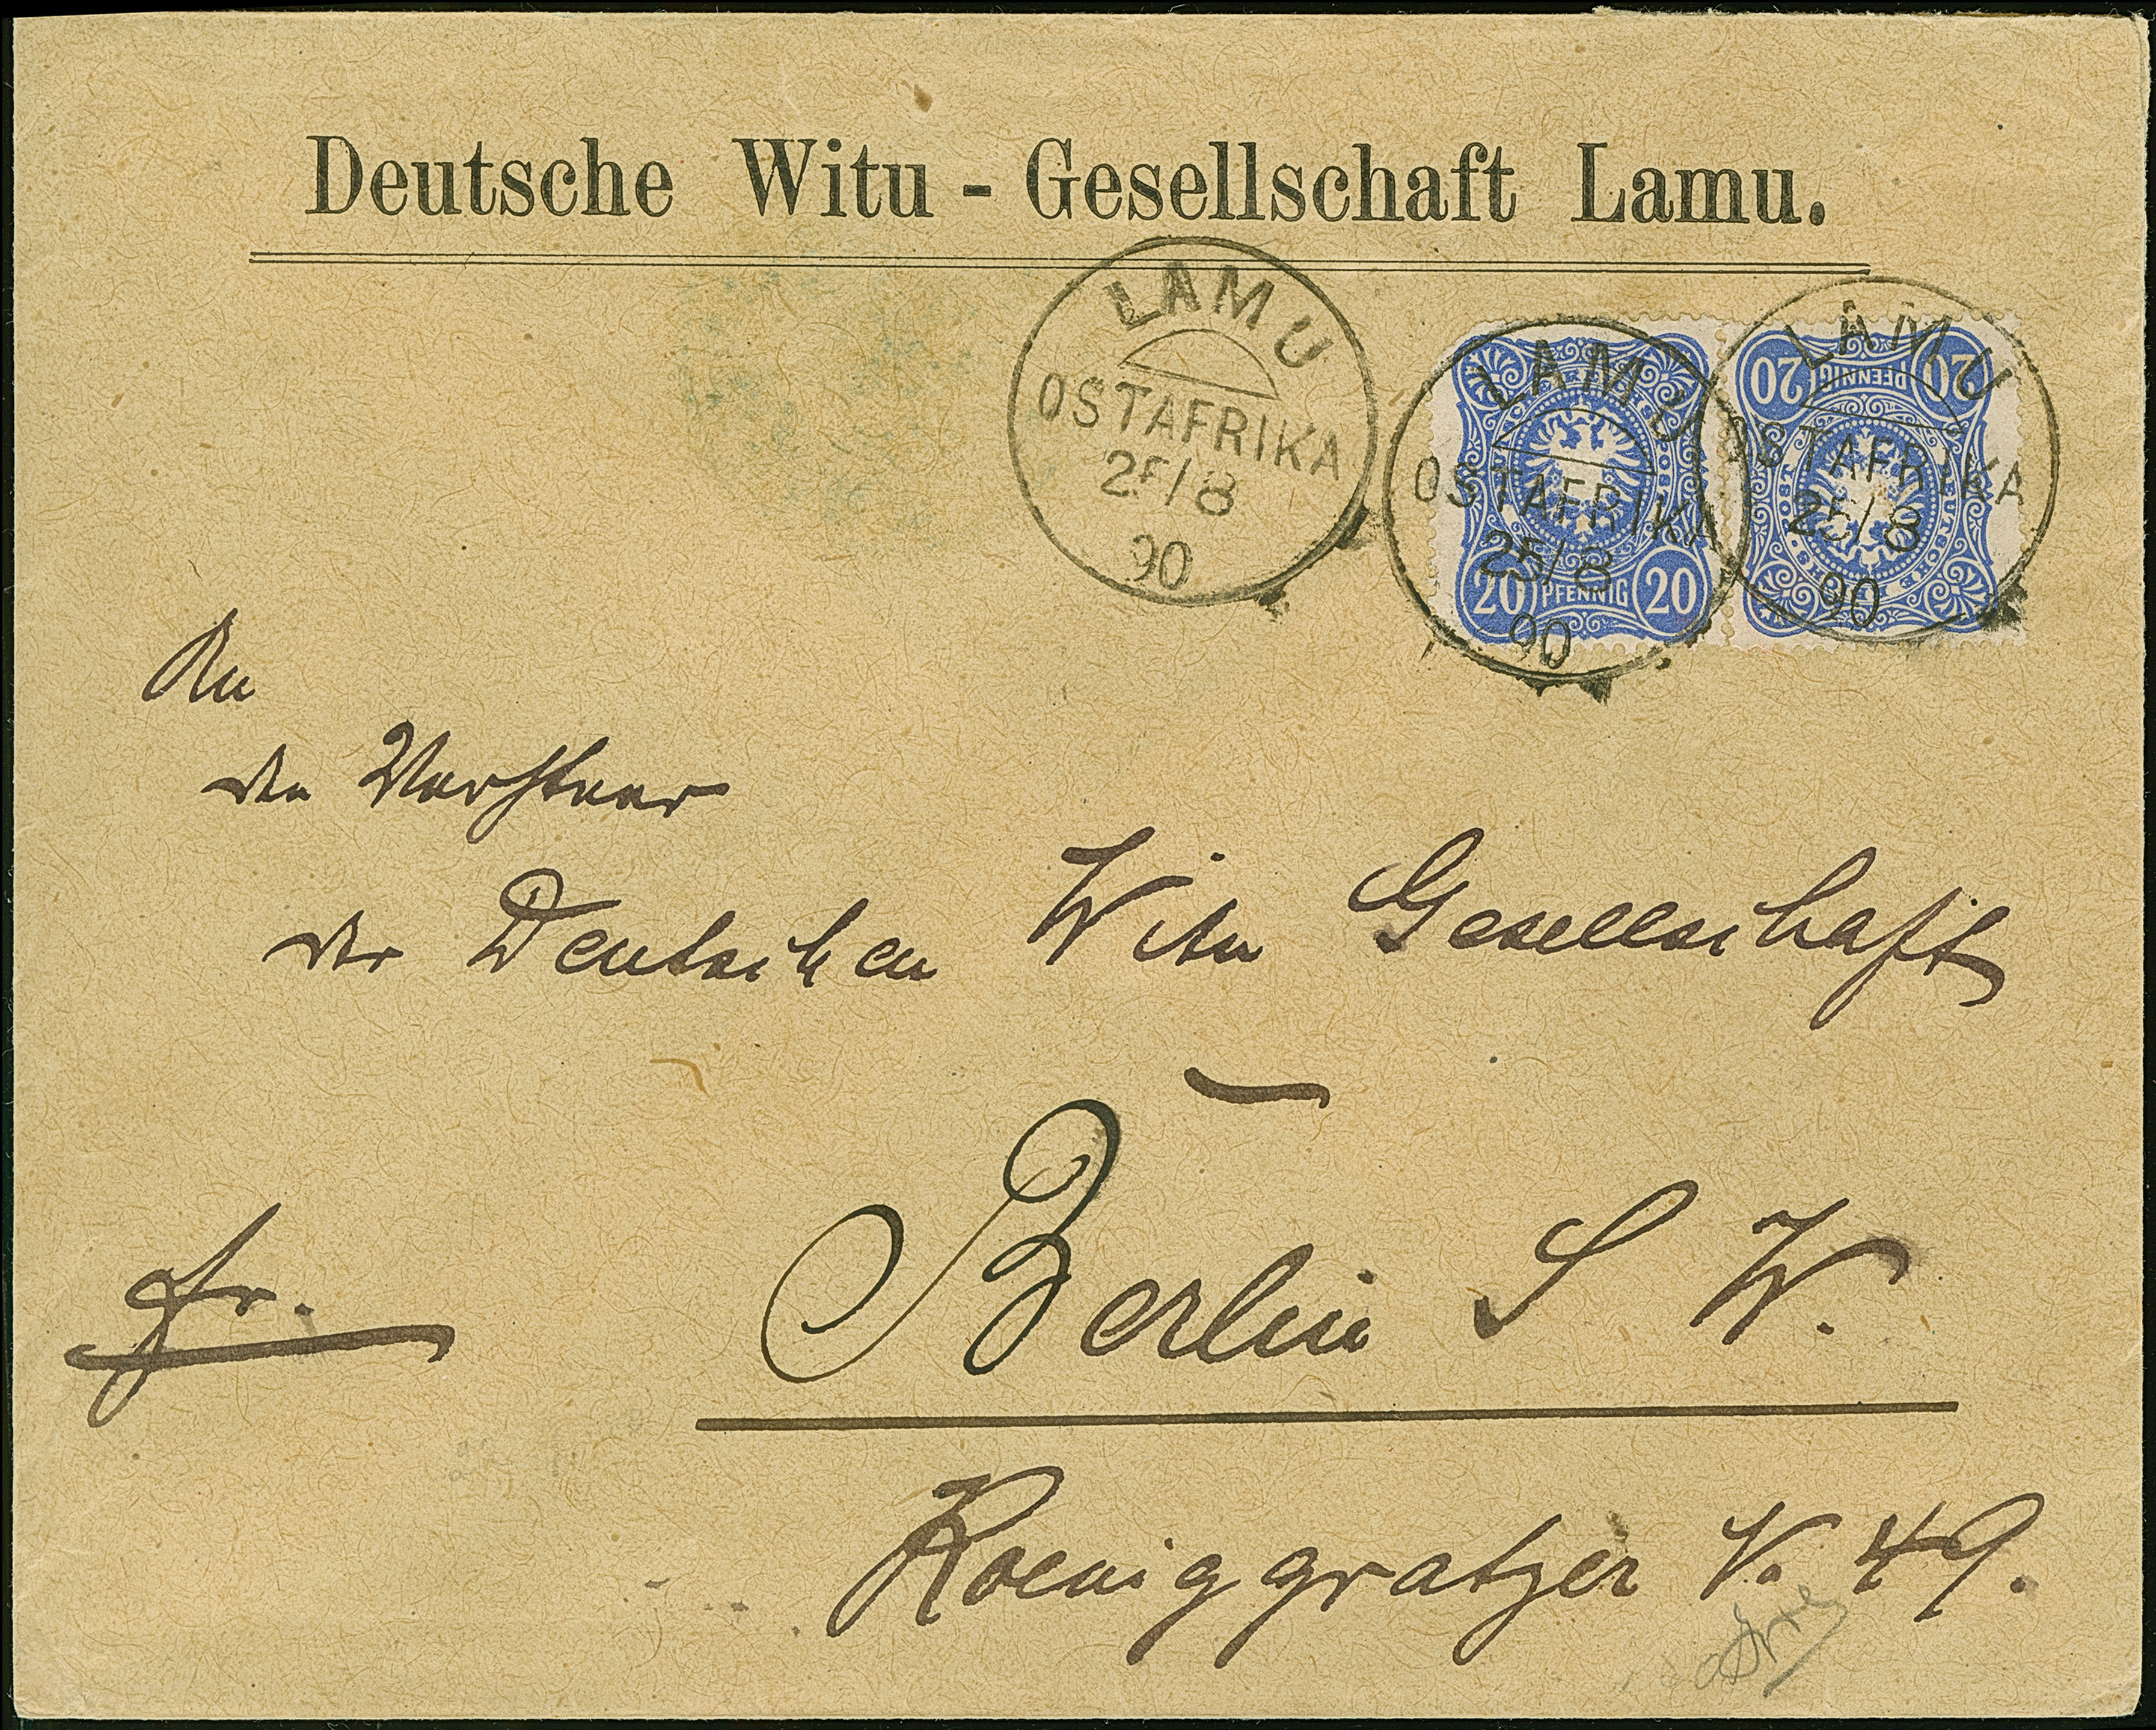 Deutsche Witu - Gesellschaft Lamu.
LAMU
OSTAFRIKA
25/8
90
LAMU
OSTAFRIKA
25/8
90
20 PFENNIG 20
LAMU
OSTAFRIKA
25/8
90
20 PFENNIG 20
An
den
der Deutschen Witu Gesellschaft
fr.
Berlin S W.
Koeniggratzer 49.